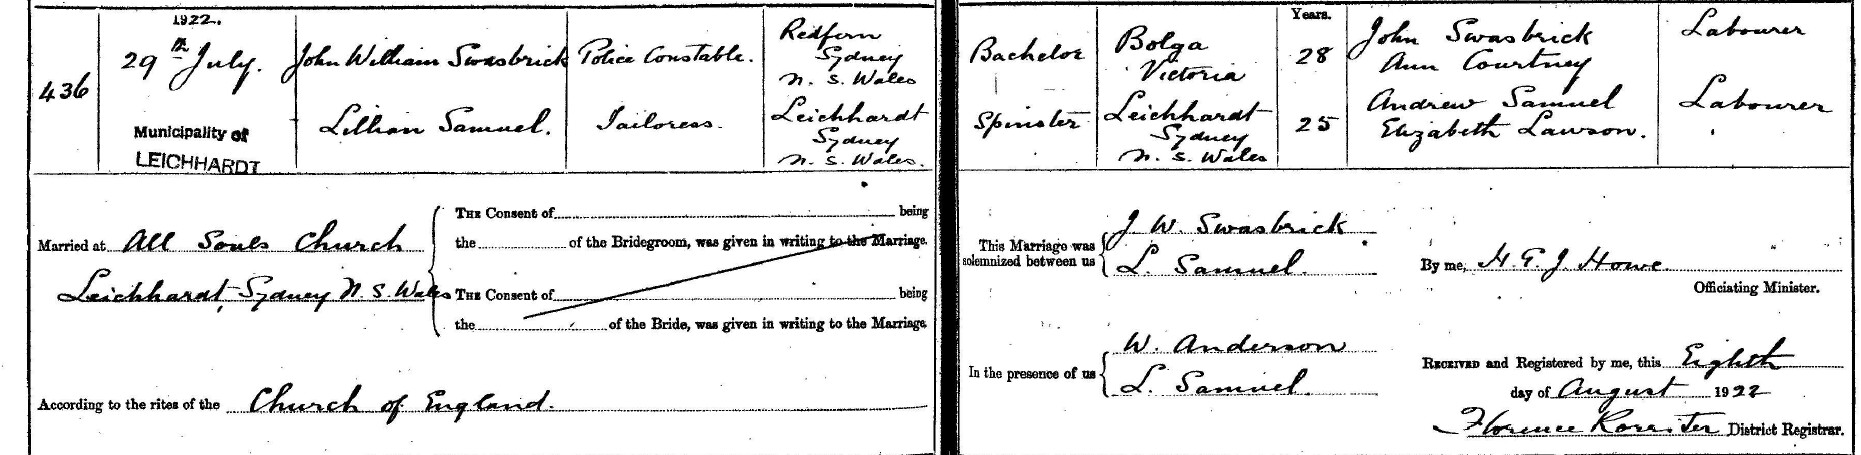 1922.
436
29th July.
John William Swasbrick
Police Constable.
Redfern
Sydney
N. S. Wales
Lillian Samuel.
Tailoress.
Leichhardt
Sydney
N. S. Wales.
Municipality of
LEICHHARDT
Married at All Souls Church
Leichhardt, Sydney N. S. Wales
THE Consent of being
the of the Bridegroom, was given in writing to the Marriage.
THE Consent of being
the of the Bride, was given in writing to the Marriage.
According to the rites of the Church of England.
Years.
Bachelor
Bolga
Victoria
28
John Swasbrick
Ann Courtney
Labourer
Spinster
Leichhardt
Sydney
N. S. Wales
25
Andrew Samuel
Elizabeth Lawson.
Labourer
This Marriage was
solemnized between us
J. W. Swasbrick
L. Samuel.
By me, H. G. J. Howe.
Officiating Minister.
In the presence of us
W. Anderson
L. Samuel.
RECEIVED and Registered by me, this Eighth
day of August 1922
Florence District Registrar.